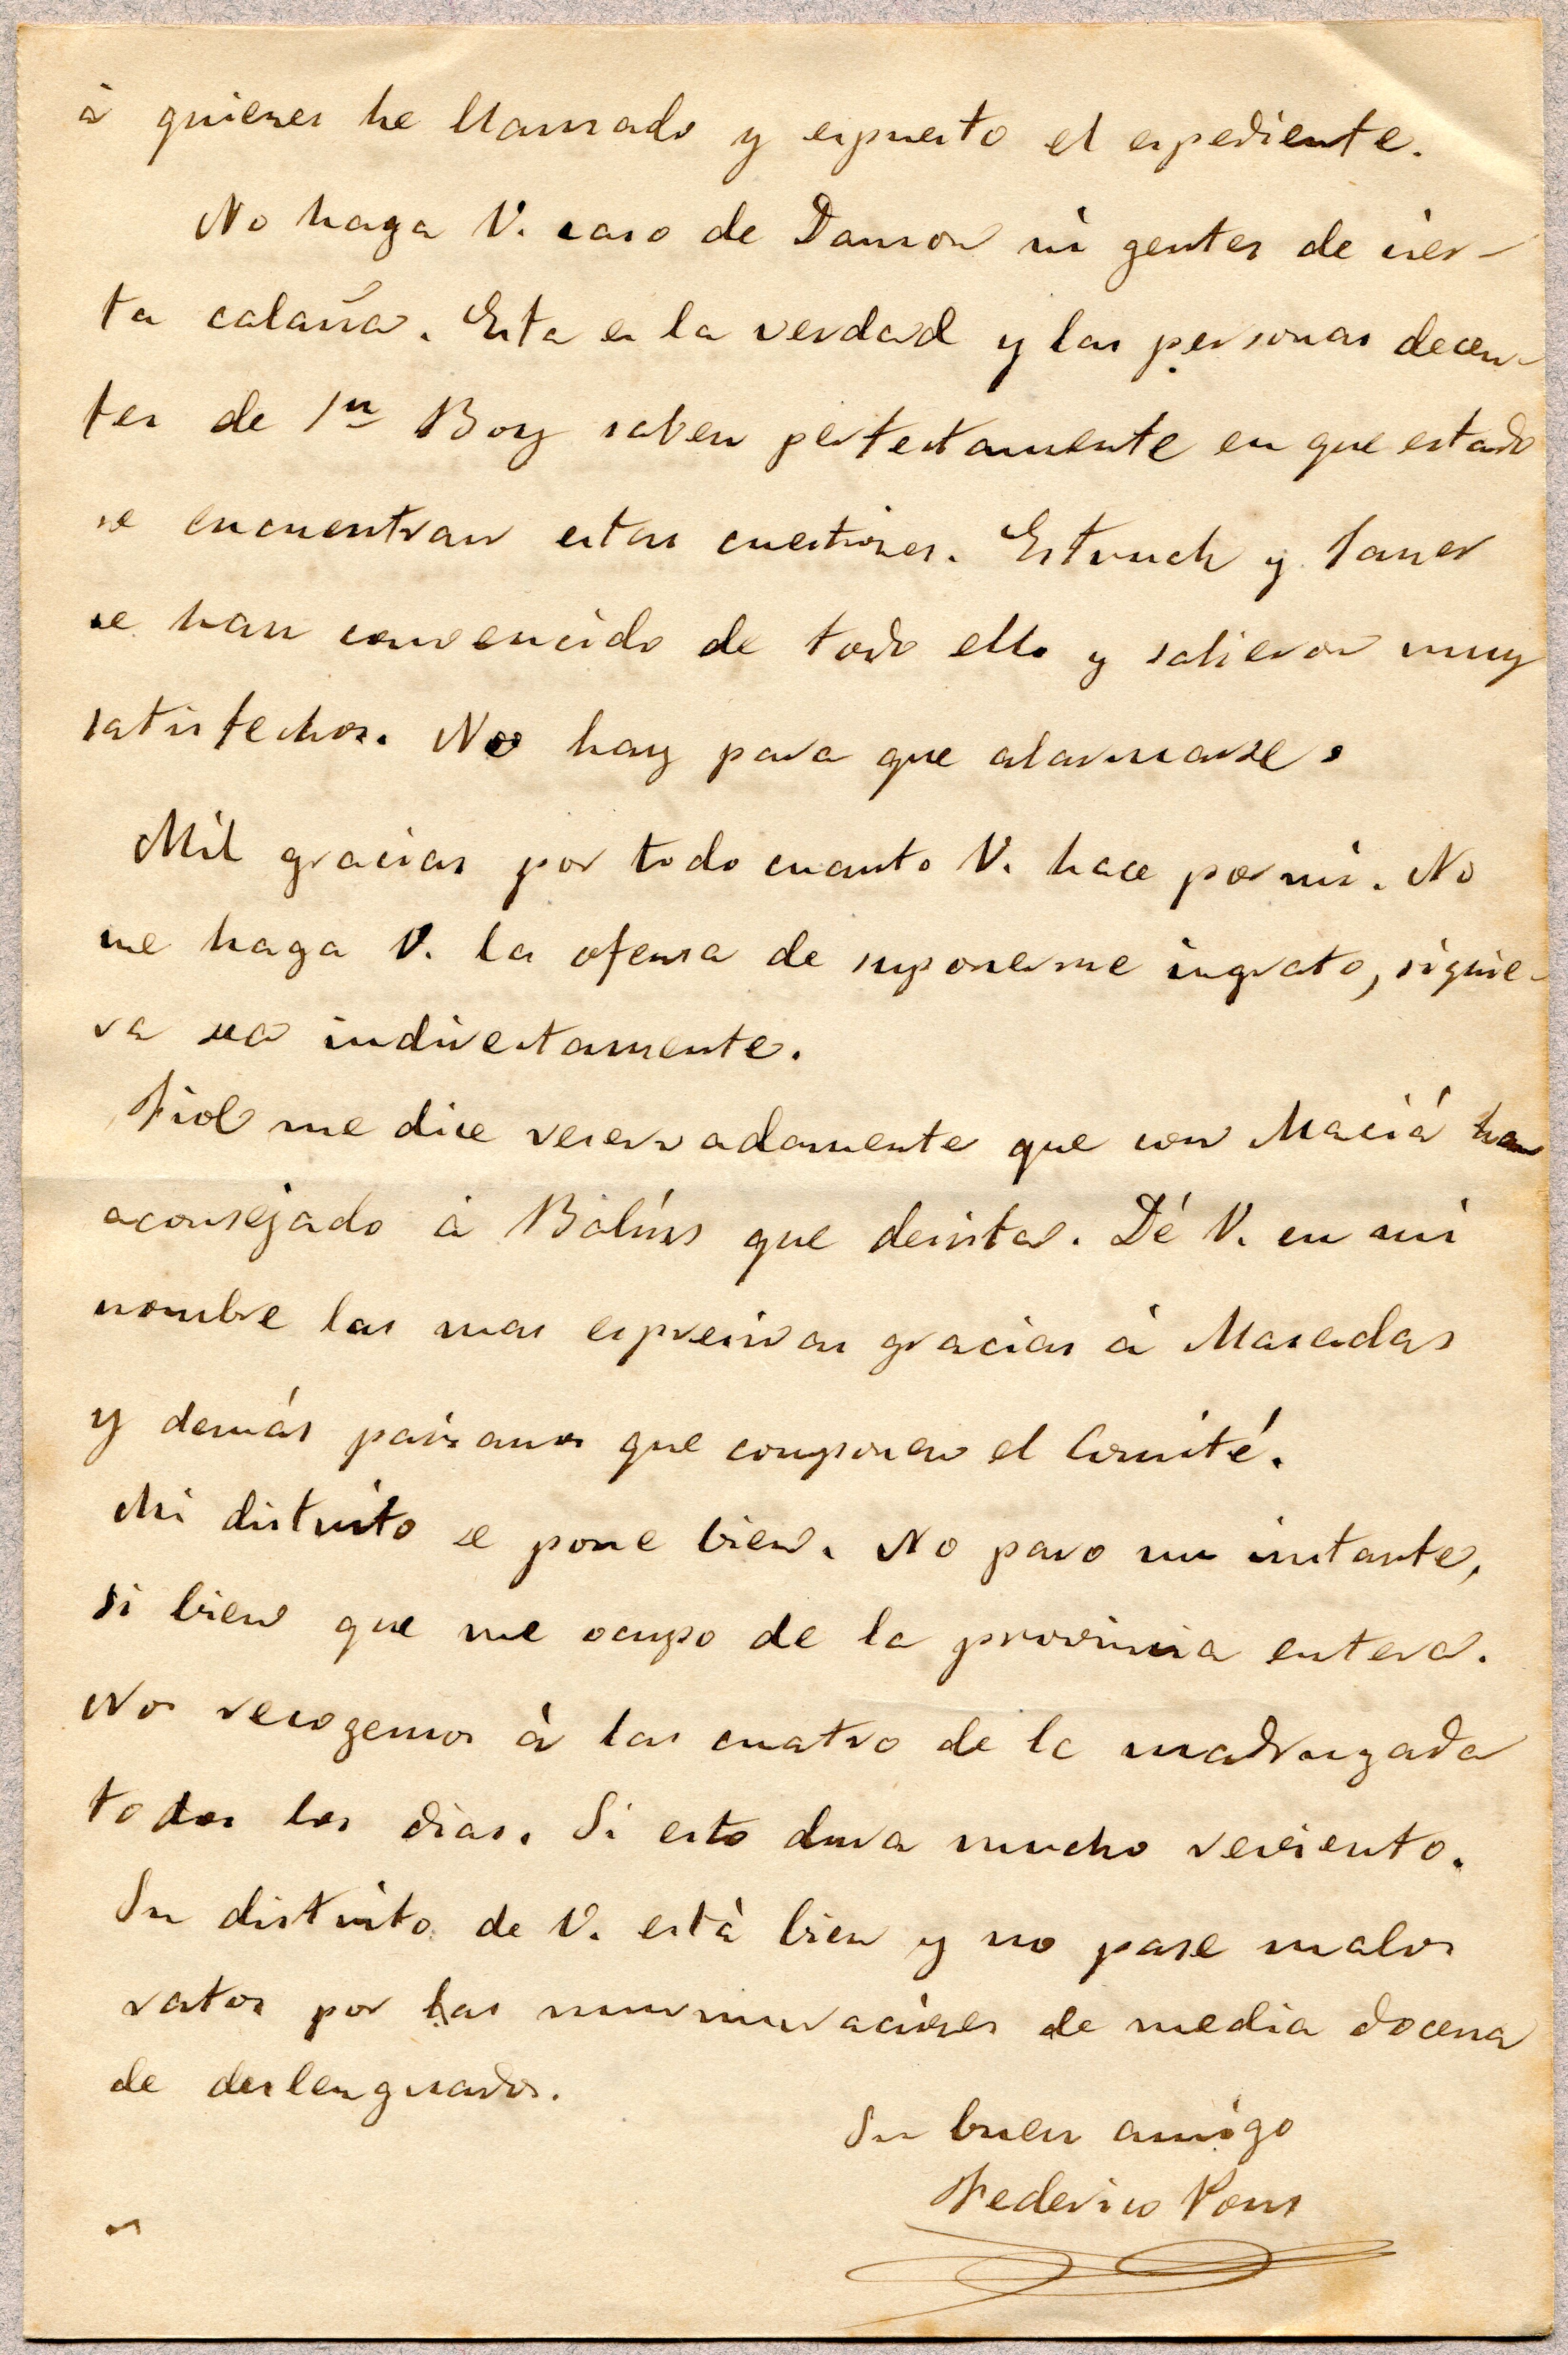 à quienes he llamado y espuesto el espediente.
No haga V. caso de ni gentes de cier-
ta calaña. Esta es la verdad y las personas decen-
tes de Sn Boy saben perfectamente en que estado
se encuentran estas cuestiones. Estruch y
se han convencido de todo ello y salieron muy
satisfechos. No hay para que alarmarse.
Mil gracias por todo cuanto V. hace por mi. No
me haga V. la ofensa de suponerme ingrato, siquie-
ra sea indirectamente.
Fiol me dice reservadamente que con Maciá han
aconsejado á que desista. Dé V. en mi
nombre las mas espresivas gracias á Masadas
y demás paisanos que componen el Comité.
Mi distrito se pone bien. No paro un instante,
si bien que me ocupo de la provincia entera.
Nos recogemos à las cuatro de la madrugada
todos los dias. Si esto dura mucho reviento.
Su distrito de V. està bien y no pase malos
ratos por las murmuraciones de media docena
de deslenguados.
Su buen amigo
Federico Pons